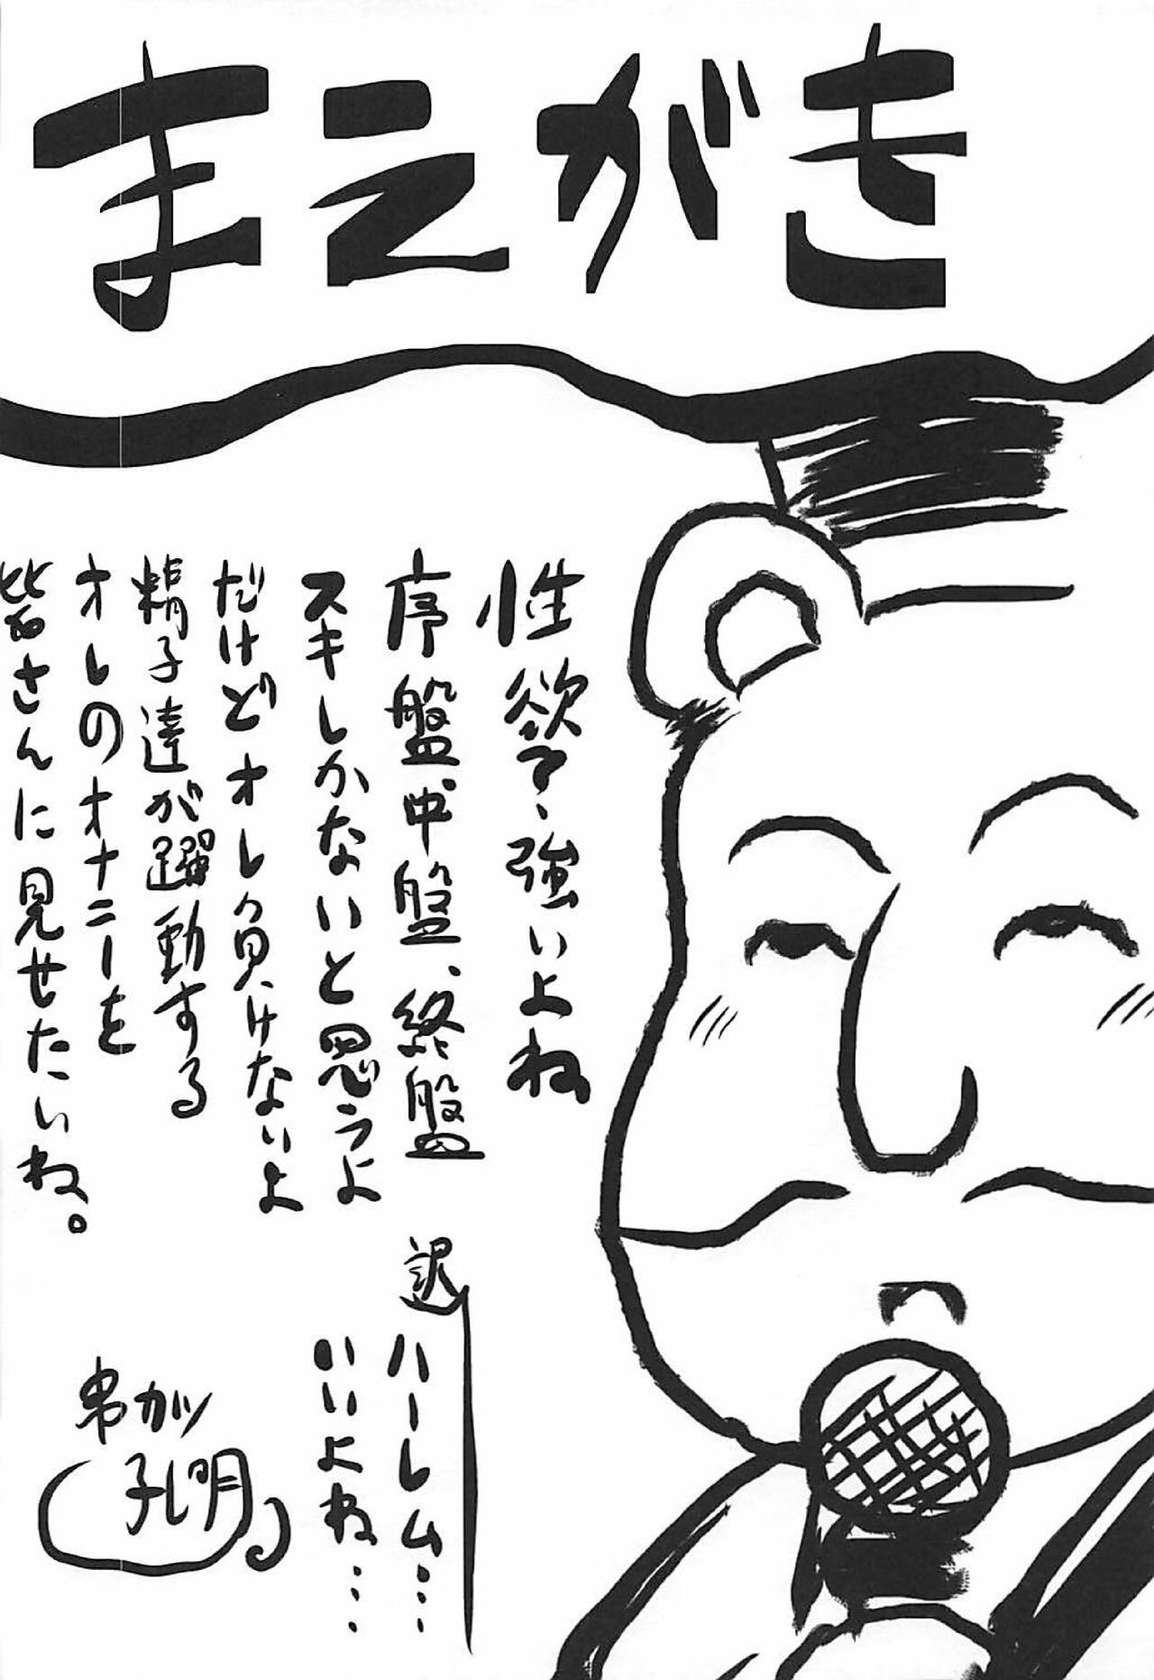 まえがき
性欲、強いよね
序盤、中盤、終盤
スキしかないと思うよ
だけどオレ負けないよ
精子達が躍動する
オレのオナニーを
皆さんに見せたいね。
逆ハーレム…
いいよね…
串カツ
孔明